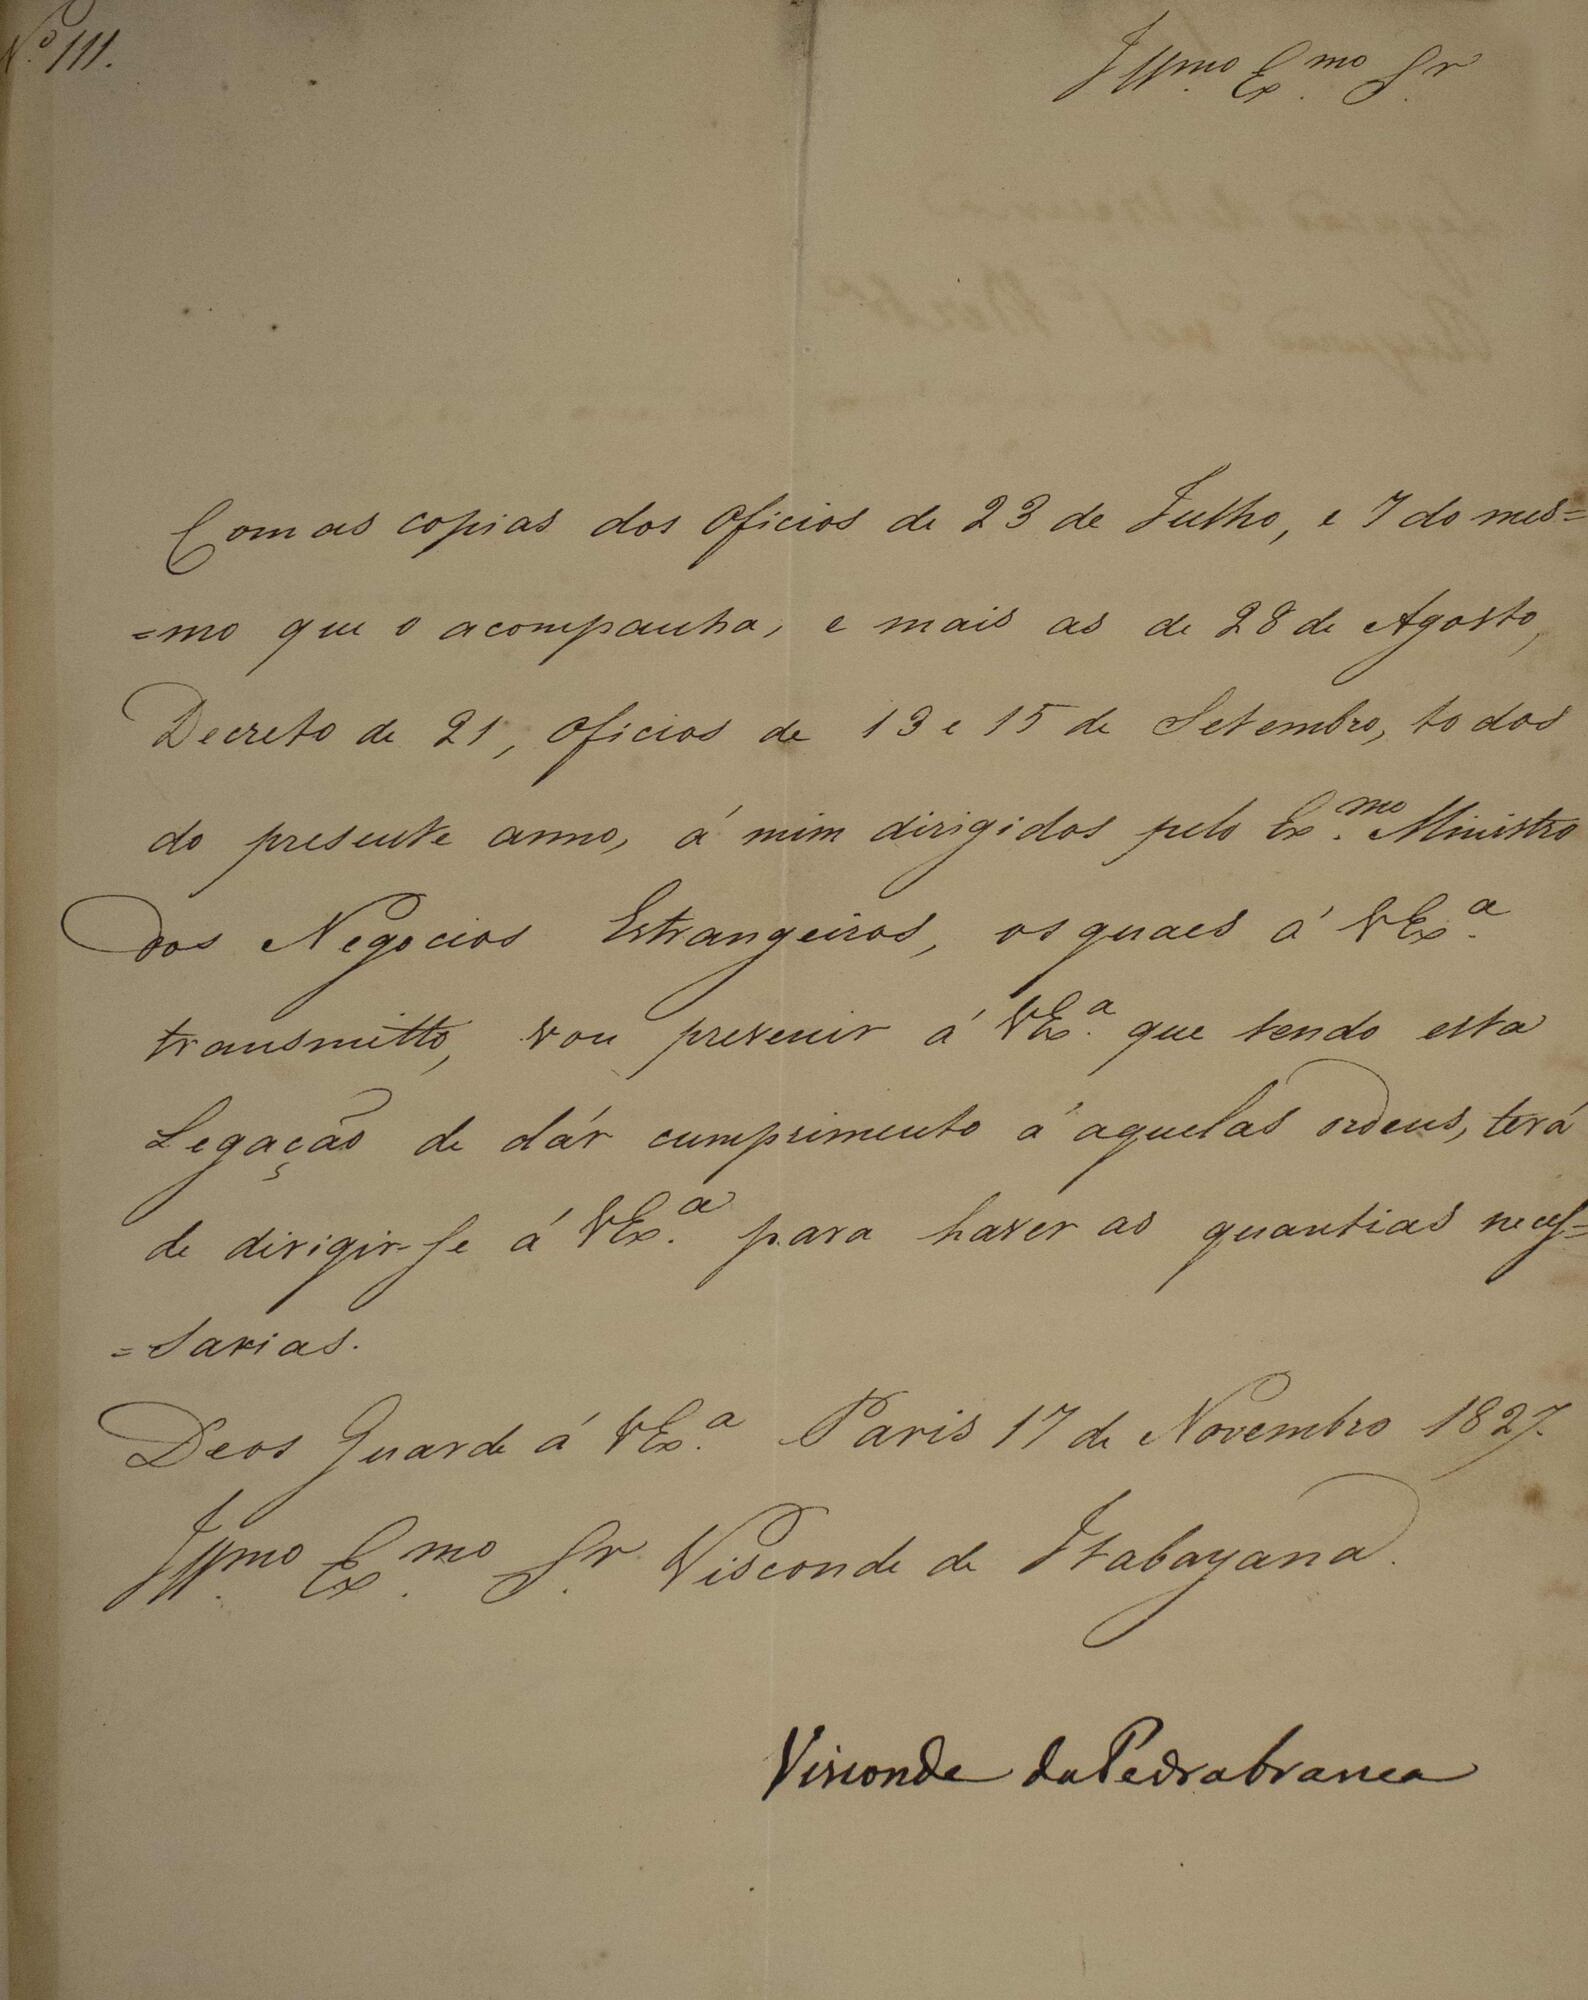 Nº 111.
Illmo. Exmo. Sr.
Com as copias dos Oficios de 23 de Julho, e 7 do mes=
=mo que o acompanha, e mais as de 28 de Agosto,
Decreto de 21, Oficios de 13 e 15 de Setembro, todos
do presente anno, á mim dirigidos pelo Ex.mo Ministro
dos Negocios Estrangeiros, os quaes á VEx.a
transmitto, vou prevenir á VEx.a que tendo esta
Legação de dár cumprimento á aquelas ordens, terá
de dirigir-se á VEx.a para haver as quantias neces=
=sarias.
Deos Guarde á VEx.a Paris 17 de Novembro 1827.
Illmo. Exmo. Sr. Visconde de Itabayana.
Visconde da Pedrabranca